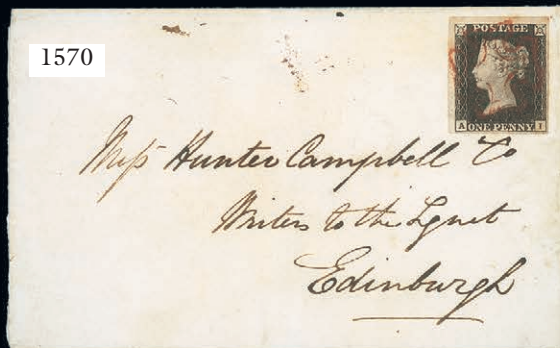 1570
POSTAGE
A ONE PENNY I
Messrs Hunter Campbell & Co
Writers to the Signet
Edinburgh